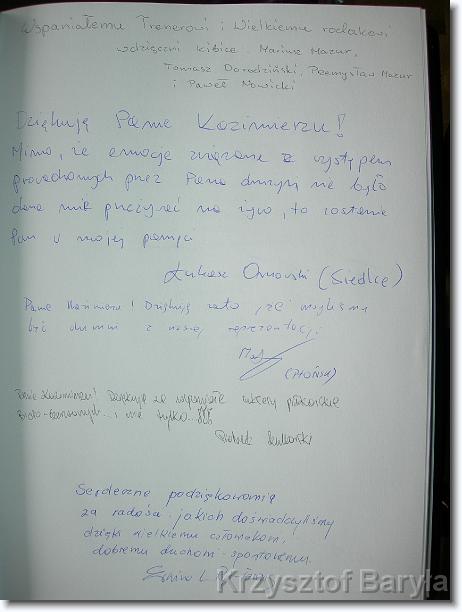 Wspaniałemu Trenerowi i Wielkiemu rodakowi
wdzięczni kibice. Mariusz Mazur,
Tomasz Dorodziński, Przemysław Mazur
i Paweł Nowicki
Dziękuję Panie Kazimierzu!
Mimo, że emocje związane z występem
prowadzonych przez Pana drużyn nie było
dane mi przeżywać na żywo, to zostanie
Pan w mojej pamięci
Łukasz (Siedlce)
Panie Kazimierzu! Dziękuję za to, że mogliśmy
być dumni z naszej reprezentacji
(PŁOŃSK)
Panie Kazimierzu! Dziękuję za wspaniałe sukcesy piłkarskie
Biało-czerwonych... i nie tylko...
Serdeczne podziękowania
za radości jakich doświadczyliśmy
dzięki wielkiemu człowiekowi,
dobremu duchowi sportowemu.
Krzysztof Baryła